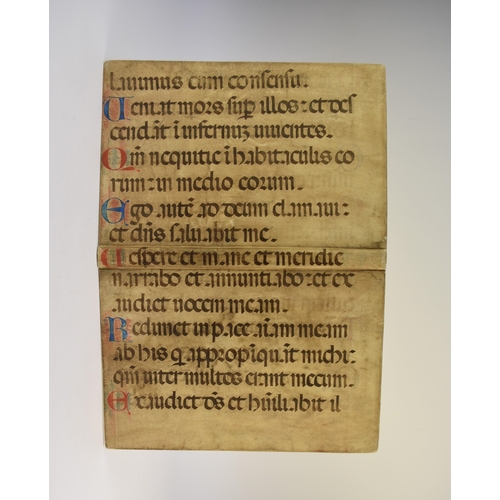 lauimus cum consensu.
Ueniat mors sup̄ illos: et des
cendāt ī infernuꝫ uiuentes.
Qm̄ nequitie ī habitaculis eo
rum: in medio eorum.
Ego autē ad deum clamaui:
et dn̄s saluabit me.
Uespere et mane et meridie
narrabo et annuntiabo: et ex
audiet uocem meam.
Redimet in pace aīam meam
ab his q̄ appropīquāt michi:
qm̄ inter multos erant mecum.
Exaudiet ds̄ et hūiliabit il